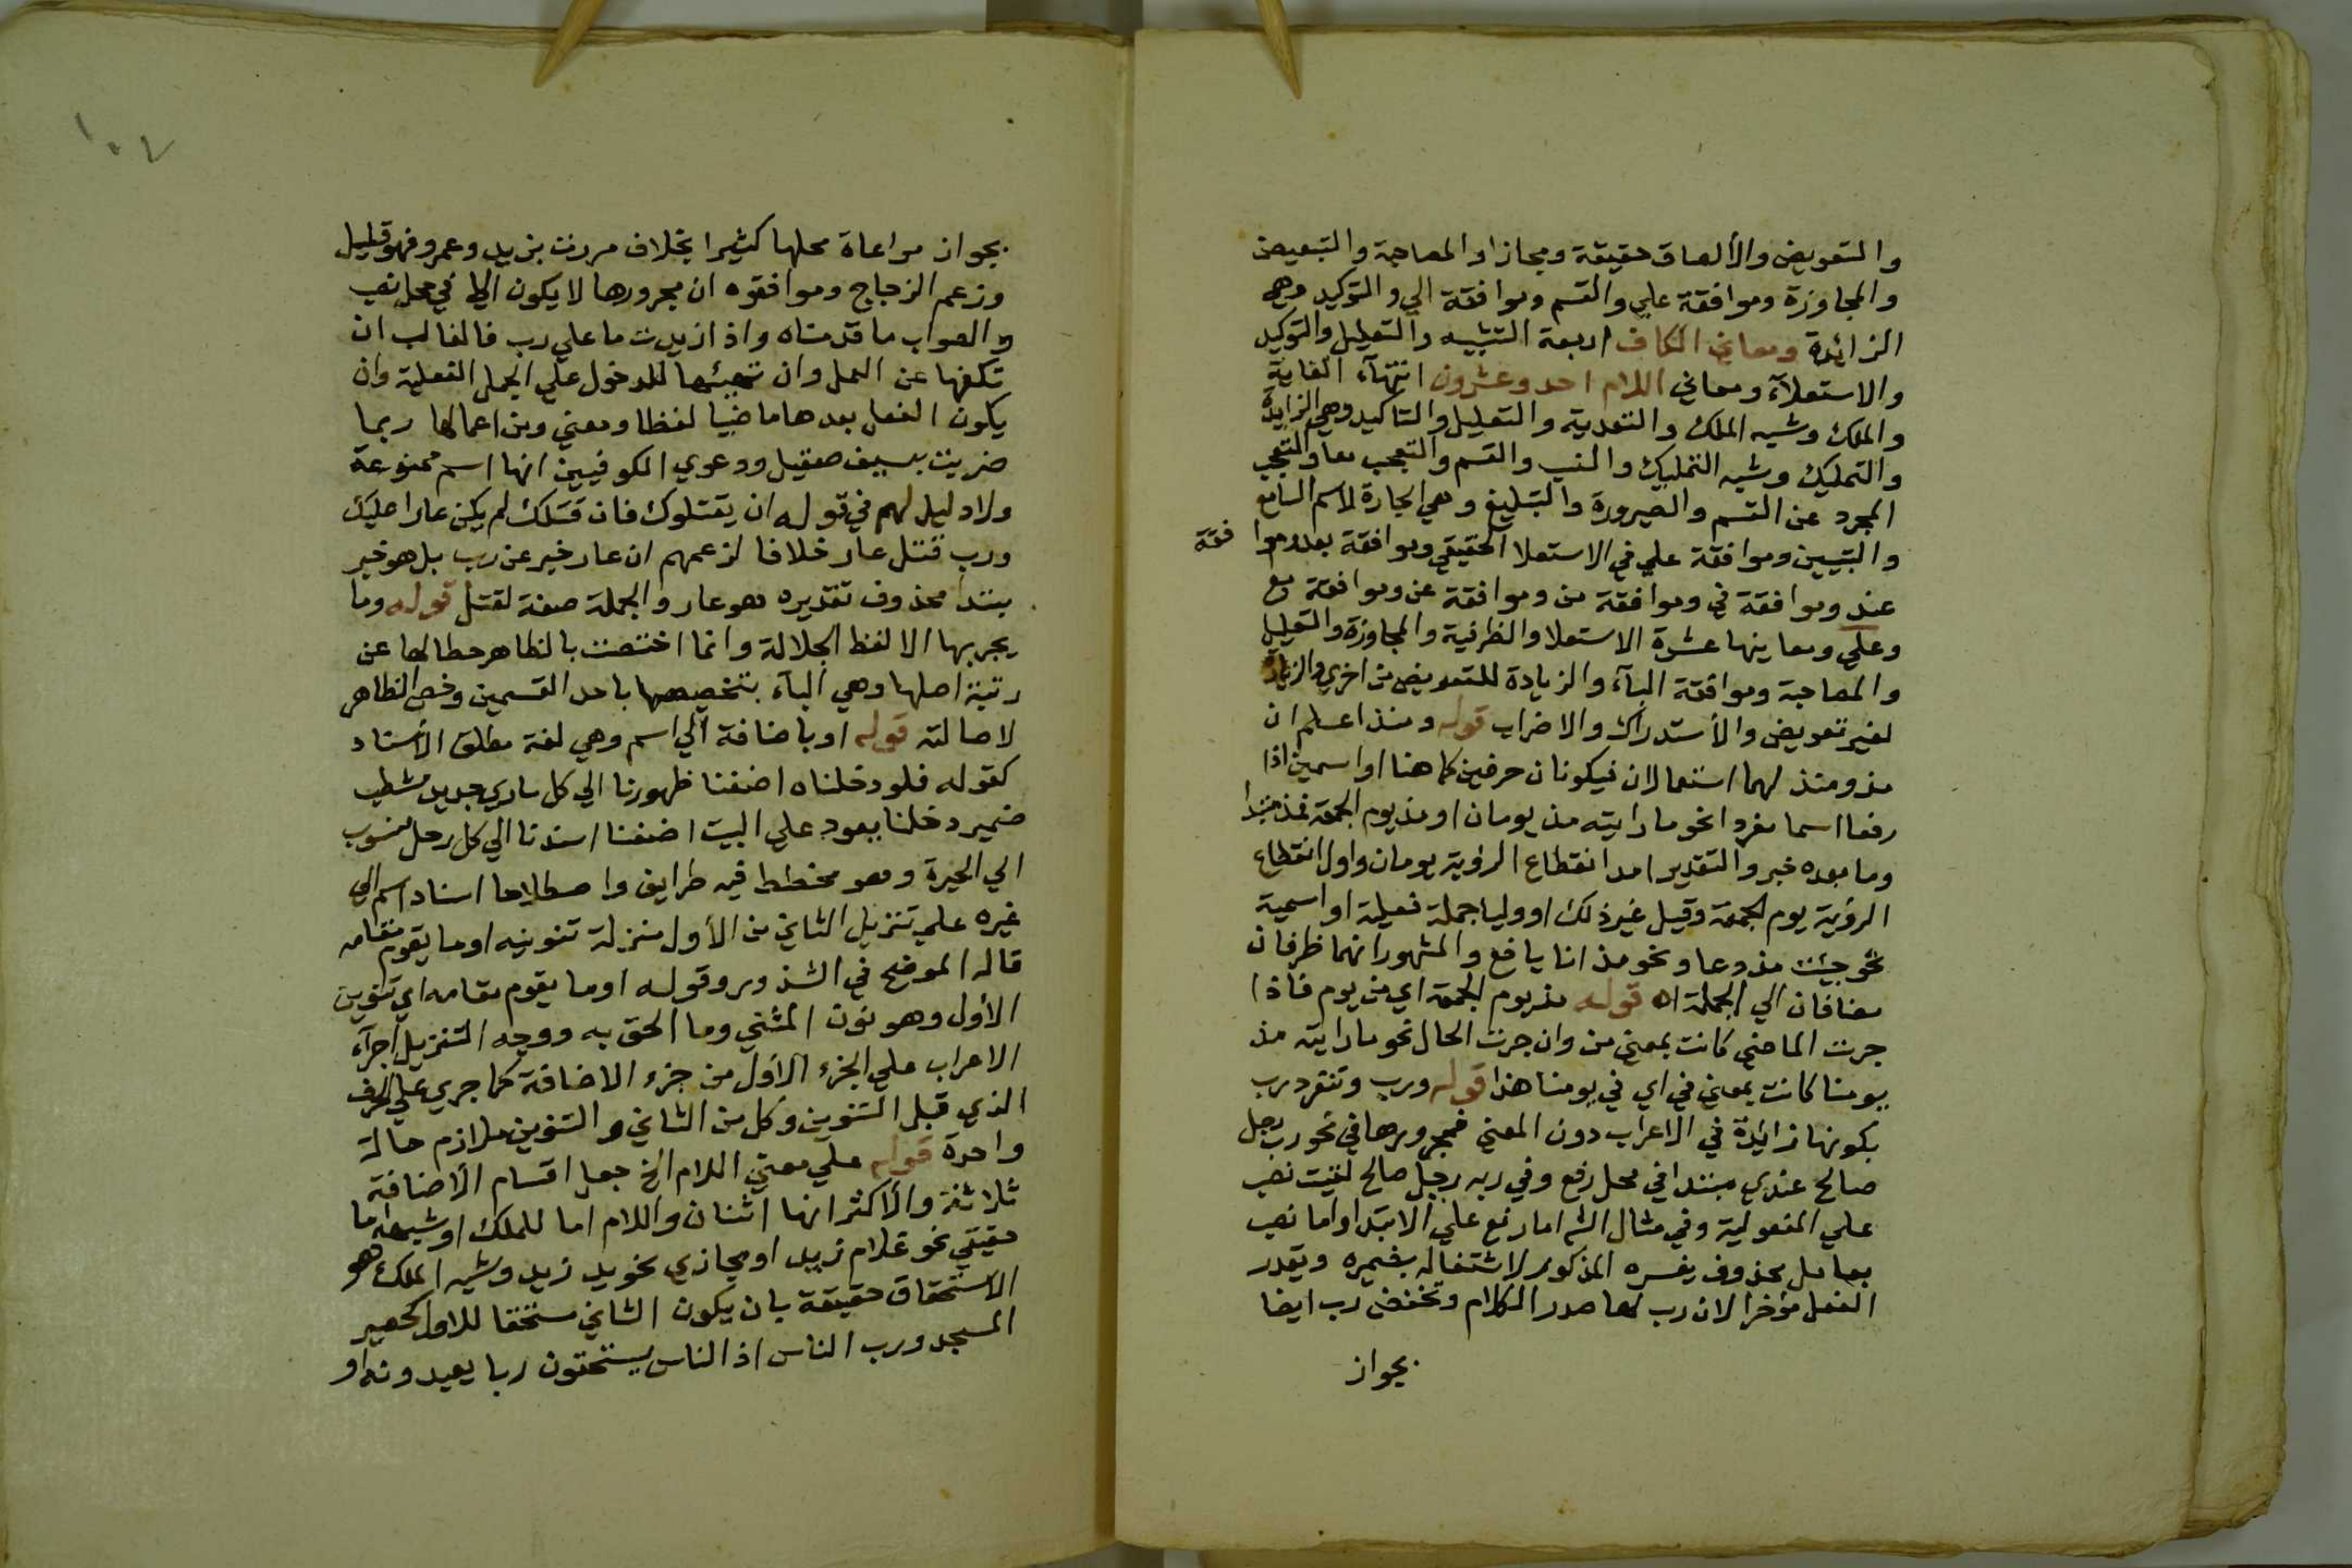 والتعويض والألصاق حقيقة ومجازا والمصاحبة والتبعيض
والمجاوزة وموافقة علي والقسم وموافقة الي والتوكيد وهي
الزائدة ومعاني الكاف اربعة التشبيه والتعليل والتوكيد
والاستعلآء ومعاني اللام احد وعشرون انتهآء الغاية
والملك وشبه الملك والتعدية والتعليل والتاكيد وهي الزايدة
والتمليك وشبه التمليك والنسب والقسم والتعجب معا والتعجب
المجرد عن القسم والصيرورة والتبليغ وهي الجارة لاسم السامع
والتبيين وموافقة علي في الاستعلا الحقيقي وموافقة بعد وموافقة
عند وموافقة في وموافقة من وموافقة عن وموافقة مع
وعلي ومعاينها عشرة الاستعلا والظرفية والمجاوزة والتعليل
والمصاحبة وموافقة البآء والزيادة للتعويض من اخري والزيادة
لغير تعويض والأستدراك والاضراب قوله ومنذ اعلم ان
مذ ومنذ لهما استعمالان فيكونان حرفين كما هنا او اسمين اذا
رفعا اسما مفردا نحو ما رايته مذ يومان او مذ يوم الجمعة فمذ مبتدا
وما بعده خبر والتقدير امد انقطاع الرؤية يومان واول انقطاع
الرؤية يوم الجمعة وقيل غير ذلك او وليا جملة فعلية او اسمية
نحو جيئت مذ دعا ونحو مذ انا يافع والمشهور انهما ظرفان
مضافان الي الجملة اه قوله مذ يوم الجمعة اي من يوم فاذا
جرت الماضي كانت بمعني من وان جرت الحال نحو ما رايته مذ
يومنا كانت بمعني في اي في يومنا هذا قوله ورب وتنفرد رب
بكونها زائدة في الاعراب دون المعني فمجرورها في نحو رب رجل
صالح عندي مبتدا في محل رفع وفي ربه رجل صالح لقيت نصب
علي المفعولية وفي مثال الش اما رفع علي الابتدا واما نصب
بعامل محذوف يفسره المذكور لاشتغاله بضميره ويقدر
الفعل مؤخرا لان رب لها صدر الكلام وتخفض رب ايضا
بجواز
١٠٧
بجواز مراعاة محلها كثيرا بخلاف مررت بزيد وعمرو فهو قليل
وزعم الزجاج وموافقوه ان مجرورها لا يكون الا في محل نصب
والصواب ما قدمناه واذا زيدت ما علي رب فالغالب ان
تكفها عن العمل وان تهيئها للدخول علي الجمل الفعلية وان
يكون الفعل بعدها ماضيا لفظا ومعني ومن اعمالها ربما
ضربت بسيف صقيل ودعوي الكوفيين انها اسم ممنوعة
ولا دليل لهم في قوله ان يقتلوك فان قتلك لم يكن عارا عليك
ورب قتل عار خلافا لزعمهم ان عار خبر عن رب بل هو خبر
مبتدا محذوف تقديره هو عار والجملة صفة لقتل قوله وما
يجر بها الا لفظ الجلالة وانما اختصت بالظاهر حطا لها عن
رتبة اصلها وهي البآء بتخصيصها باحد القسمين وخص الظاهر
لاصالته قوله او باضافة الي اسم وهي لغة مطلق الأسناد
كقوله فلو دخلناه اضفنا ظهورنا الي كل ماري جديد مشطب
ضمير دخلنا يعود علي البيت اضفنا اسندنا الي كل رحل منسوب
الي الحيرة وهو مخطط فيه طرايق واصطلاحا اسناد اسم الي
غيره علي تنزيل الثاني من الأول منزلة تنوينه او ما يقوم مقامه
قاله الموضح في الشذور وقوله او ما يقوم مقامه اي تنوين
الأول وهو نون المثني وما الحق به ووجه التنزيل اجرآء
الاعراب علي الجزء الأول من جزء الاضافة كما جري علي الحرف
الذي قبل التنوين وكل من الثاني والتنوين ملازم حالة
واحدة قوله علي معني اللام الخ جعل اقسام الأضافة
ثلاثة والأكثر انها اثنان واللام اما للملك او شبهه اما
حقيقي نحو غلام زيد او مجازي نحو يد زيد وشبه الملك هو
الاستحقاق حقيقة بان يكون الثاني مستحقا للاول كحصير
المسجد ورب الناس اذ الناس يستحقون ربا يعبدونه او